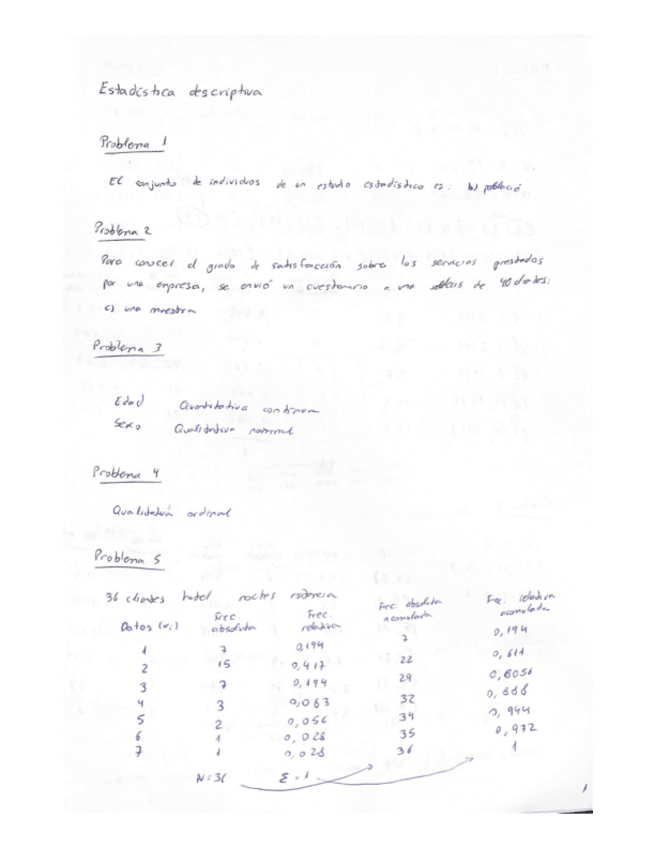 Estadística descriptiva
Problema 1
El conjunto de individuos de un estudio estadístico es: b) població
Problema 2
Para conocer el grado de satisfacción sobre los servicios prestados
por una empresa, se envió un cuestionario a una de 40 clientes:
c) una muestra
Problema 3
Edad Quantitativa continua
Sexo Qualitativa nominal
Problema 4
Qualitativa ordinal
Problema 5
36 clientes hotel noches
Datos (xi) Frec. absoluta Frec. relativa Frec. absoluta acumulada Frec. relativa acumulada
1 7 0,194 7 0,194
2 15 0,417 22 0,611
3 7 0,194 29 0,8056
4 3 0,083 32 0,888
5 2 0,056 34 0,944
6 1 0,028 35 0,972
7 1 0,028 36 1
N=36 Σ=1
1